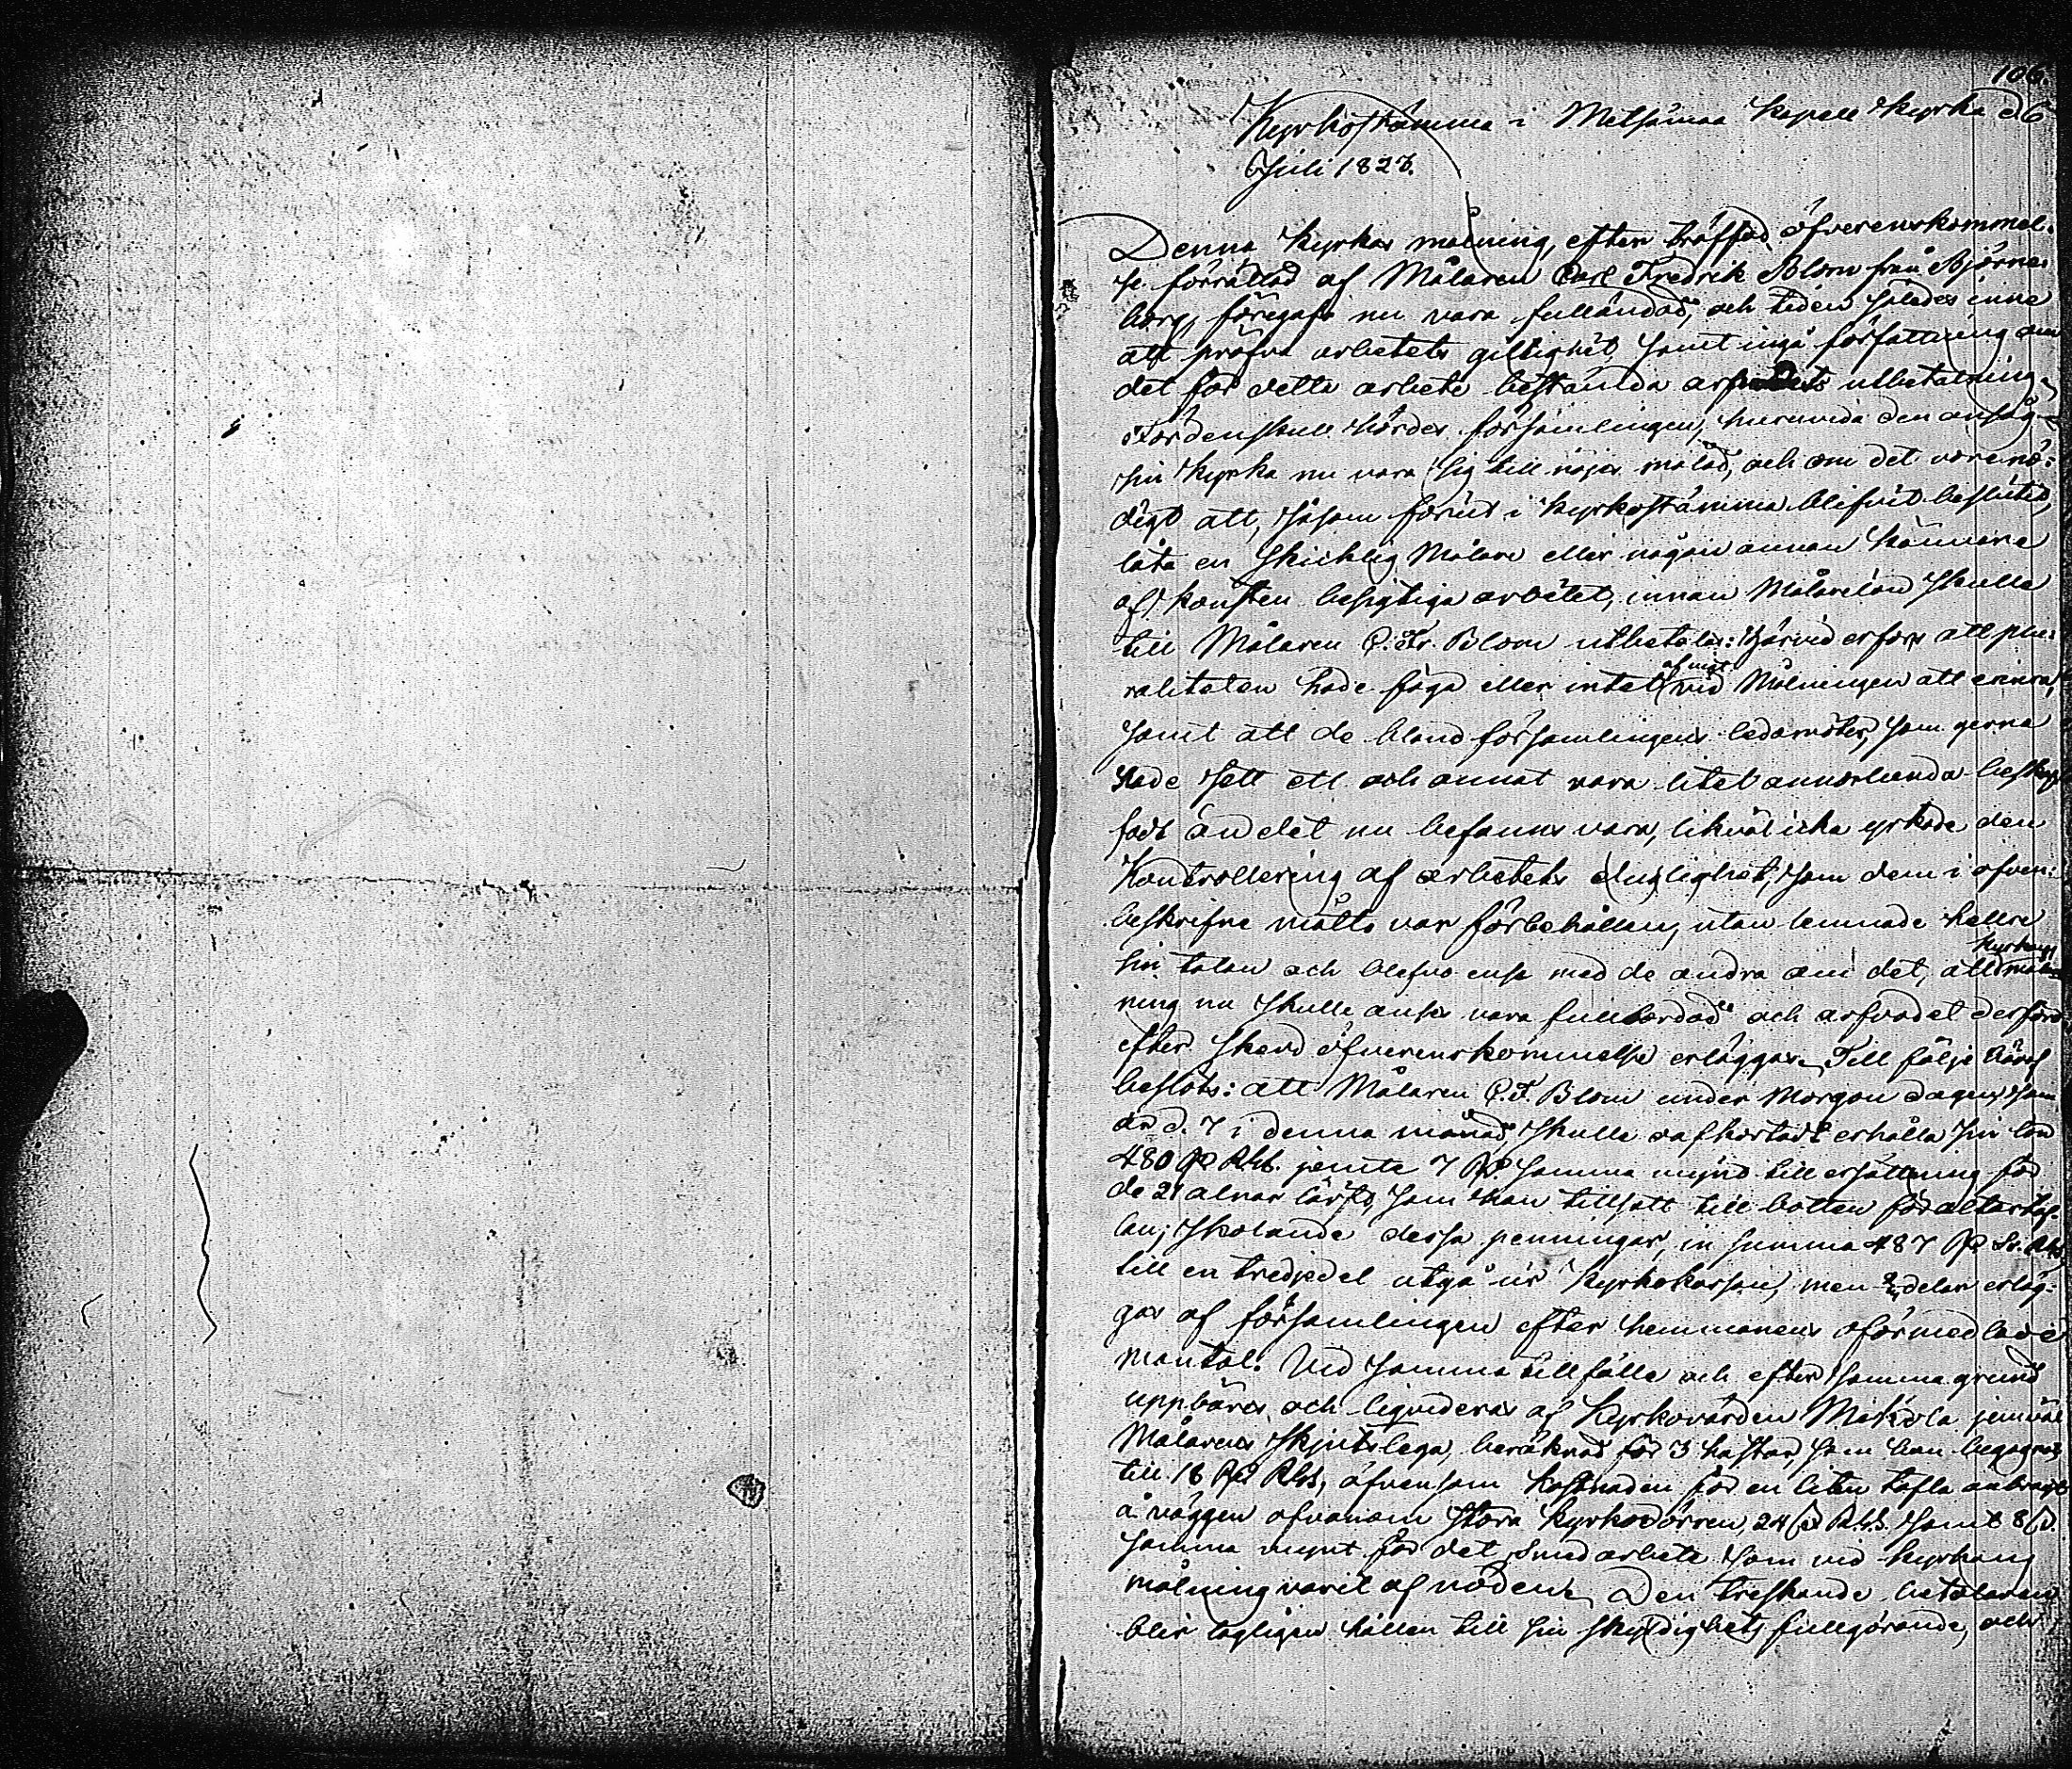 106.
Kyrkostämma i Metsämaa Kapell Kyrka d. 6
Juli 1827.
Denna Kyrkas målning, efter träffad öfverenskommel-
se förrättad af Målaren Carl Fredrik Blom från Björne-
borg, föregafs nu vara fulländad, och tiden således inne
att pröfva arbetets giltighet, samt ingå författning om
det för detta arbete bestämda arfvodets utbetalning.
Fördenskull hördes församlingen, huruvida den ansåg
sin Kyrka nu vara sig till nöjes målad, och om det vore nö-
digt att, såsom förut i Kyrkostämma blifvit beslutet,
låta en skicklig Målare eller någon annan kännare
af konsten besigtiga arbetet, innan Målarelön skulle
till Målaren C. Fr. Blom utbetalas: Härvid erfors att plu-
raliteten hade föga eller intet vid Målningen att erinra,
samt att de bland församlingens ledamöter, som gerna
hade sett ett och annat vara litet annorlunda beskaf-
fadt än det nu befanns vara, likväl icke yrkade den
Kontrollering af arbetets duglighet, som dem i ofvan-
beskrifne måtto var förbehållen, utan lemnade hellre
sin talan och blefvo ense med de andra om det, att Kyrkans mål-
ning nu skulle anses vara fullbordad och arfvodet derföre
efter skedd öfverenskommelse erläggas. Till följe häraf
beslöts: att Målaren C. F. Blom under Morgondagen som
är d. 7 i denna månad skulle oafkortadt erhålla sin lön
480 R Rbs. jemte 7 R samma mynt till ersättning för
de 21 alnar lärft, som han tillsatt till botten för altartaf-
lan; skolande dessa penningar, in summa 487 R Sv. Rbs
till en tredjedel utgå ur Kyrkokassan, men 2/3 delar erläg-
gas af församlingen efter hemmanens oförmedlade
mantal. Vid samma tillfälle och efter samma grund
uppbäres och liqvideras af Kyrkovärden Mäkola jemväl
Målarens skjutslega, beräknad för 3 hästar, som han begagnat
till 18 R Rbs, äfvensom kostnaden för en liten tafla anbragt
å väggen ofvanom stora kyrkodörren, 24 R.bs. samt 8
samma mynt för det smedarbete som vid kyrkans
målning varit af nöden. Den treskande betalaren
blir lagligen hållen till sin skyldighets fullgörande, och